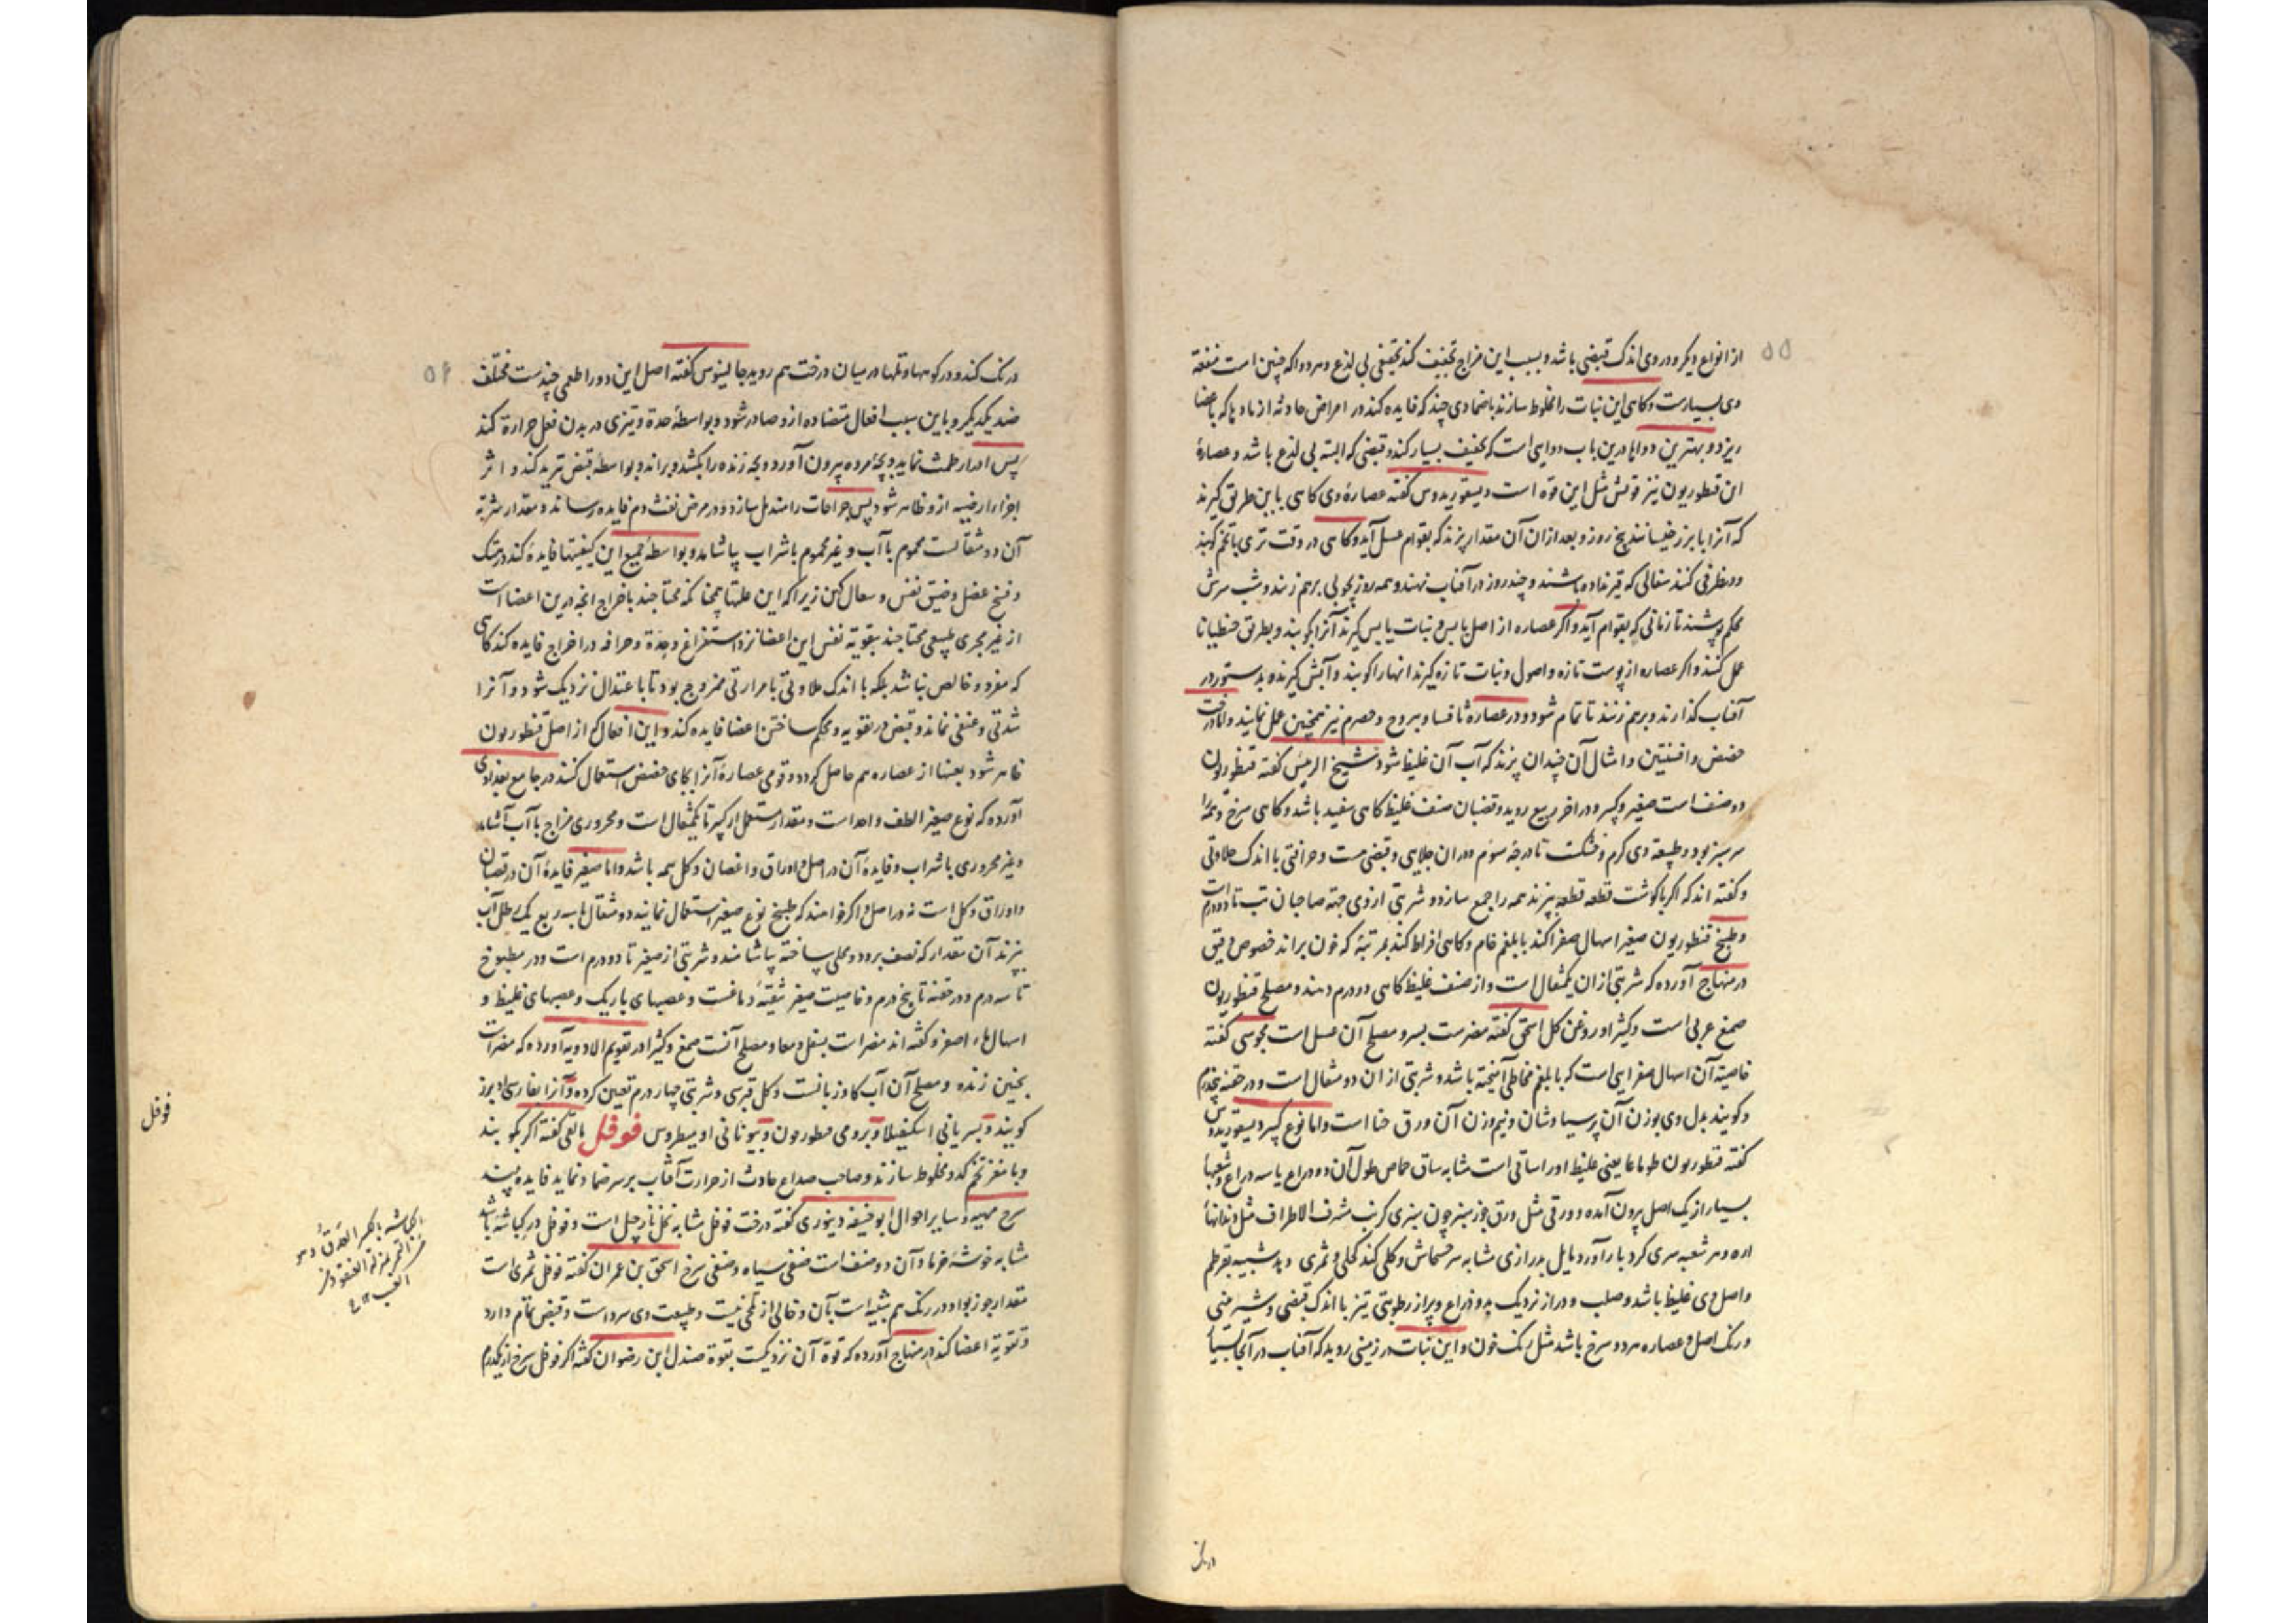 ۵۵
از انواع دیکر و در وی اندک قبضی باشد و بسبب این مزاج تجفیف کند تجفیفی بی لذع و هر دوا که چنین است منفعة
وی بسیارست و کاهی این نبات را مخلوط سازند باضمادی چند که فایده کند در امراض حادثه از موادیکه باعضا
ریزد و بهترین دواها درین باب دوایی است که تجفیف بسیار کند و قبضی که البته بی لذع باشد و عصارهٔ
این قنطوریون نیز قوتش مثل این قوه است دیسقوریدوس کفته عصارهٔ وی کاهی باین طریق کیرند
که آنرا با بزر خیسانند پنج روز و بعد ازان آن مقدار پزند که بقوام عسل آید و کاهی در وقت تری با تخم کوبند
و در ظرفی کنند سفالی که قیر نداده باشند و چند روز در آفتاب نهند و همه روز بچوبی برهم زنند و شب سرش
محکم بپوشند تا زمانی که بقوام آید و اکر عصاره از اصل یابس و نبات یابس کیرند آنرا بکوبند و بطریق جنطیانا
عمل کنند و اکر عصاره از پوست تازه و اصول و نبات تازه کیرند انهارا کوبند و آبش کیرند و بدستور در
آفتاب کذارند و برهم زنند تا تمام شود و در عصارهٔ ثافسا و یبروح و حصرم نیز همچنین عمل نمایند و اما در
حضض و افسنتین و امثال آن چندان پزند که آب آن غلیظ شود شیخ الرییس کفته قنطوریون
دو صنف است صغیر و کبیر و در اخر ربیع روید و قضبان صنف غلیظ کاهی سفید باشد و کاهی سرخ
سر سبز بود و طبیعة وی کرم و خشکست تا درجهٔ سوم و دران جلایی و قبضی هست و حرافتی با اندک حلاوتی
و کفته اند که اکر با کوشت قطعه قطعه بپزند همه را جمع سازد و شربتی از وی جهة صاحبان تب تا دو درم است
و طبیخ قنطوریون صغیر اسهال صفرا کند با بلغم خام و کاهی افراط کند بمرتبهٔ که خون براند خصوص دقیق
در منهاج آورده که شربتی ازان یکمثقال است و از صنف غلیظ کاهی دو درم دهند و مصلح قنطوریون
صمغ عربی است و کثیرا و روغن کل اسحق کفته مضرست بسر و مصلح آن عسل است مجوسی کفته
خاصیة آن اسهال صفرایی است که با بلغم مخاطی آمیخته باشد و شربتی از ان دو مثقال است و در حقنه پنجدرم
و کویند بدل وی بوزن آن پرسیاوشان و نیم وزن آن ورق حنا است و اما نوع کبیر دیسقوریدوس
کفته قنطوریون طوماغا یعنی غلیظ اورا ساقی است مشابه ساق حماض طول آن دو ذراع یا سه ذراع و شعبها
بسیار از یک اصل بیرون آمده و ورقی مثل ورق جوز سبز چون سبزی کرنب مشرف الاطراف مثل دندانهٔ
اره و هر شعبه سری کرد بار آورد مایل بدرازی مشابه سر خشخاش و کلی کند کحلی و ثمری دهد شبیه بقرطم
و اصل وی غلیظ باشد و صلب و دراز نزدیک بدو ذراع و پر از رطوبتی تیز با اندک قبضی و شیرینی
و رنک اصل و عصاره هر دو سرخ باشد مثل رنک خون و این نبات در زمینی روید که آفتاب در آنجا بسیار
۵۶
درنک کند و در کوهها و تلها و در میان درخت هم روید جالینوس کفته اصل این دوا را طعمی چندست مختلف
ضد یکدیکر و باین سبب افعال متضاده ازو صادر شود و بواسطهٔ حدة و تیزی در بدن فعل حرارة کند
پس ادرار طمث نماید و بچهٔ مرده بیرون آورد و بچه زنده را بکشد و براند و بواسطهٔ قبض تبرید کند و اثر
اجزاء ارضیه ازو ظاهر شود پس جراحات را مندمل سازد و در مرض نفث دم فایده رساند و مقدار شربة
آن دو مثقالست محموم با آب و غیر محموم با شراب بیاشامد و بواسطهٔ جمیع این کیفیتها فایده کند در هتک
و فسخ عضل و ضیق نفس و سعال کهن زیرا که این علتها همچنانکه محتاجند باخراج انچه درین اعضا است
از غیر مجری طبیعی محتاجند بتقویة نفس این اعضا نزد استفراغ و حدة و حرافه در اخراج فایده کند کاهی
که مفرد و خالص نباشد بلکه با اندک حلاوتی یا مرارتی ممزوج بود تا باعتدال نزدیک شود و آنرا
شدتی و عنفی نماند و قبض در تقویه و محکم ساختن اعضا فایده کند و این افعال که از اصل قنطوریون
ظاهر شود بعینها از عصاره هم حاصل کردد و قومی عصارهٔ آنرا بجای حضض استعمال کنند در جامع بغدادی
آورده که نوع صغیر الطف و احد است و مقدار مستعمل از کبیر تا یکمثقال است و محروری مزاج با آب آشامد
و غیر محروری با شراب و فایدهٔ آن در اصل و اوراق و اغصان و کل همه باشد و اما صغیر فایدهٔ آن در قضبان
و اوراق و کل است نه در اصل و اکر خواهند که طبیخ نوع صغیر استعمال نمایند دو مثقال با سه ربع یک رطل آب
بپزند آن مقدار که نصف برود و محلی ساخته بیاشامند و شربتی از صغیر تا دو درم است و در مطبوخ
تا سه درم و در حقنه تا پنج درم و خاصیت صغیر تنقیهٔ دماغست و عصبهای باریک و عصبهای غلیظ و
اسهال ماء اصفر و کفته اند مضر است بسفل و معا و مصلح آنست صمغ و کثیرا در تقویم الادویه آورده که مضر است
بجنین زنده و مصلح آن آب کاوزبانست و کل قبرسی و شربتی چهار درم تعین کرده و آنرا بفارسی
کویند و بسریانی و برومی قنطوریون و بیونانی فوفل بالقی کفته اکر بکوبند
و با مغز تخم کدو مخلوط سازند و صاحب صداع حادث از حرارت آفتاب بر سر ضماد نماید فایده
سرخ و سایر احوال ابو حنیفه دینوری کفته درخت فوفل مشابه نخل نارجیل است و فوفل در کباسهٔ باشد
مشابه خوشهٔ خرما و آن دو صنف است صنفی سیاه و صنفی سرخ اسحق بن عمران کفته فوفل ثمری است
مقدار جوز بوا و در رنک هم شبیه است بآن و خالی از تلخی نیست و طبیعت وی سرد است و قبض تمام دارد
و تقویة اعضا کند در منهاج آورده که قوة آن نزدیکست بقوة صندل ابن رضوان کفته اکر فوفل سرخ از یکدرم
فوفل
الکباسة بالکسر العذق و هو
من التمر بمنزلة العنقود من
العنب
درنک